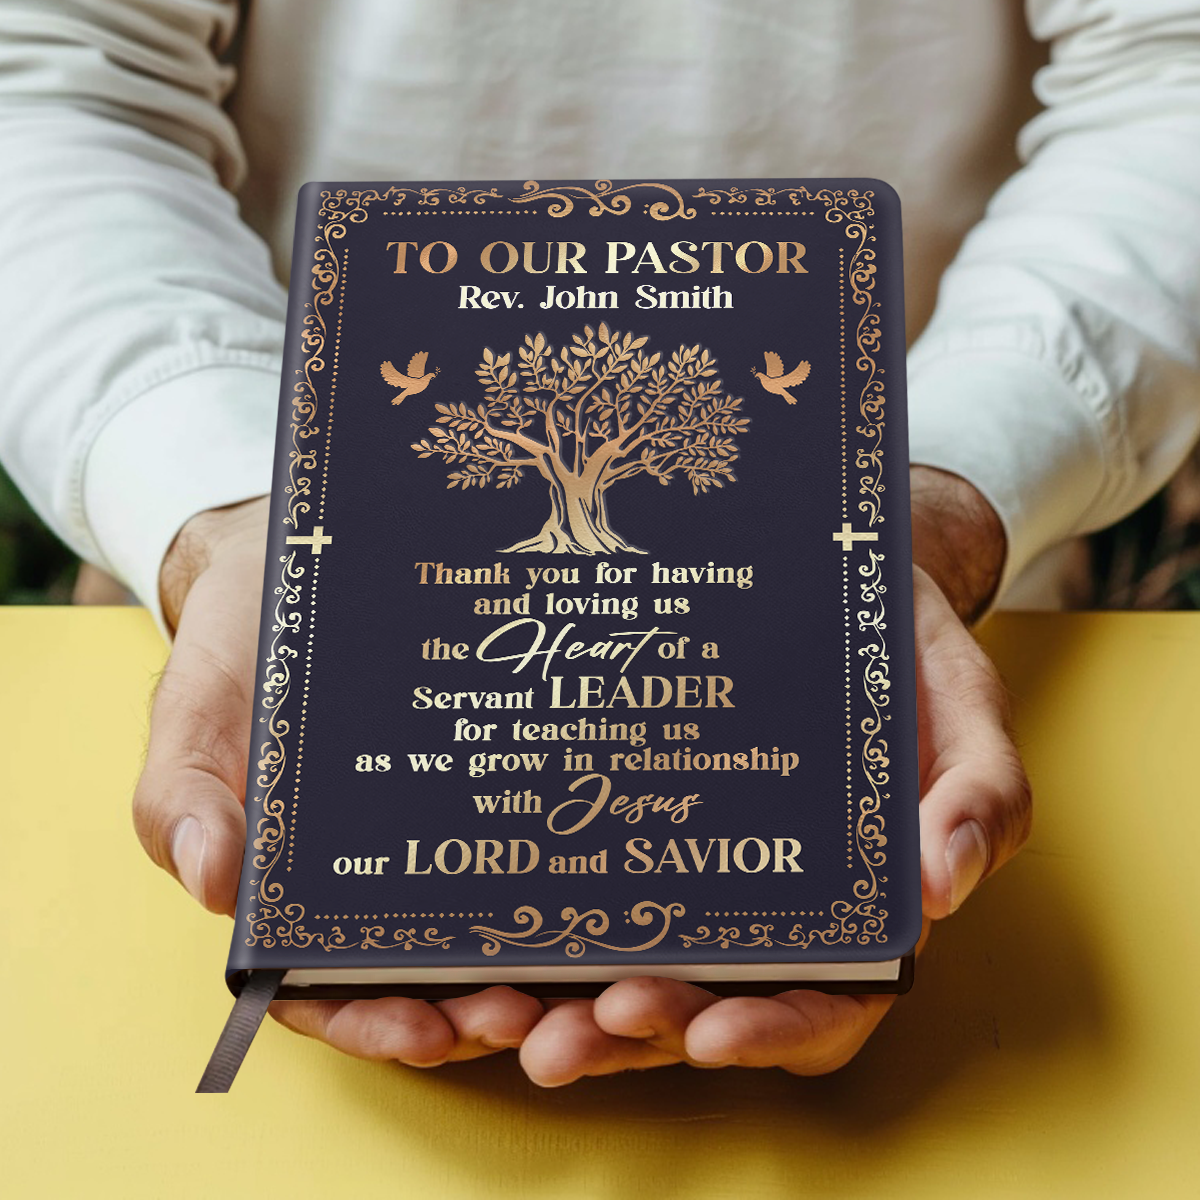 TO OUR PASTOR
Rev. John Smith
Thank you for having
and loving us
the Heart of a
Servant LEADER
for teaching us
as we grow in relationship
with Jesus
our LORD and SAVIOR